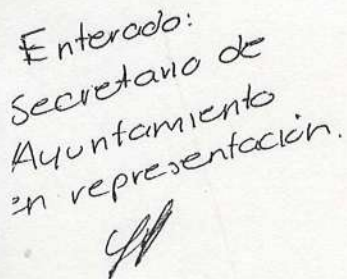 Enterado:
Secretario de
Ayuntamiento
en representación.